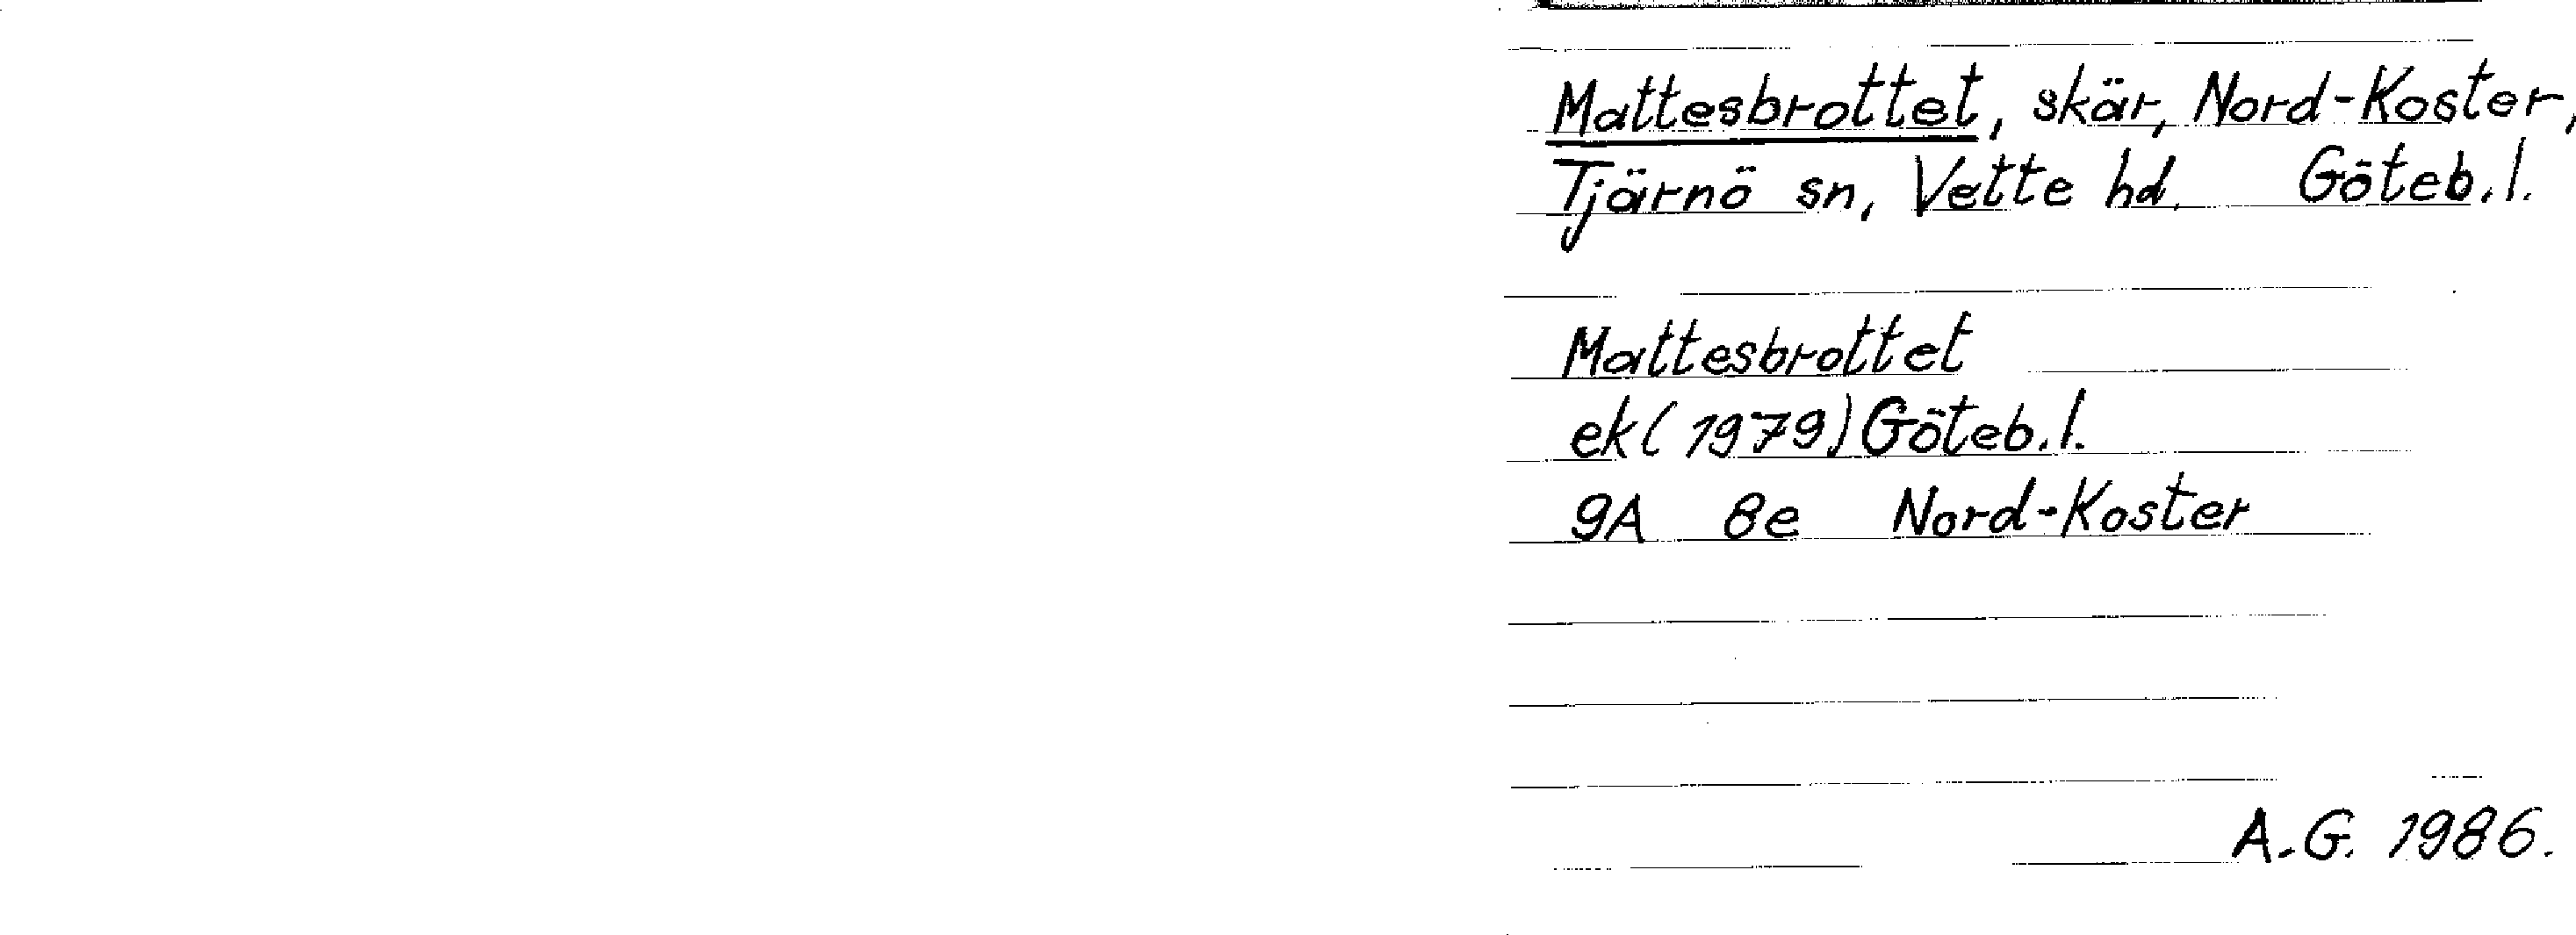 Mattesbrottet, skär, Nord-Koster,
Tjärnö sn, Vette hd. Göteb.l.
Mattesbrottet
ek(1979) Göteb.l.
9A 8e Nord-Koster
A.G. 1986.